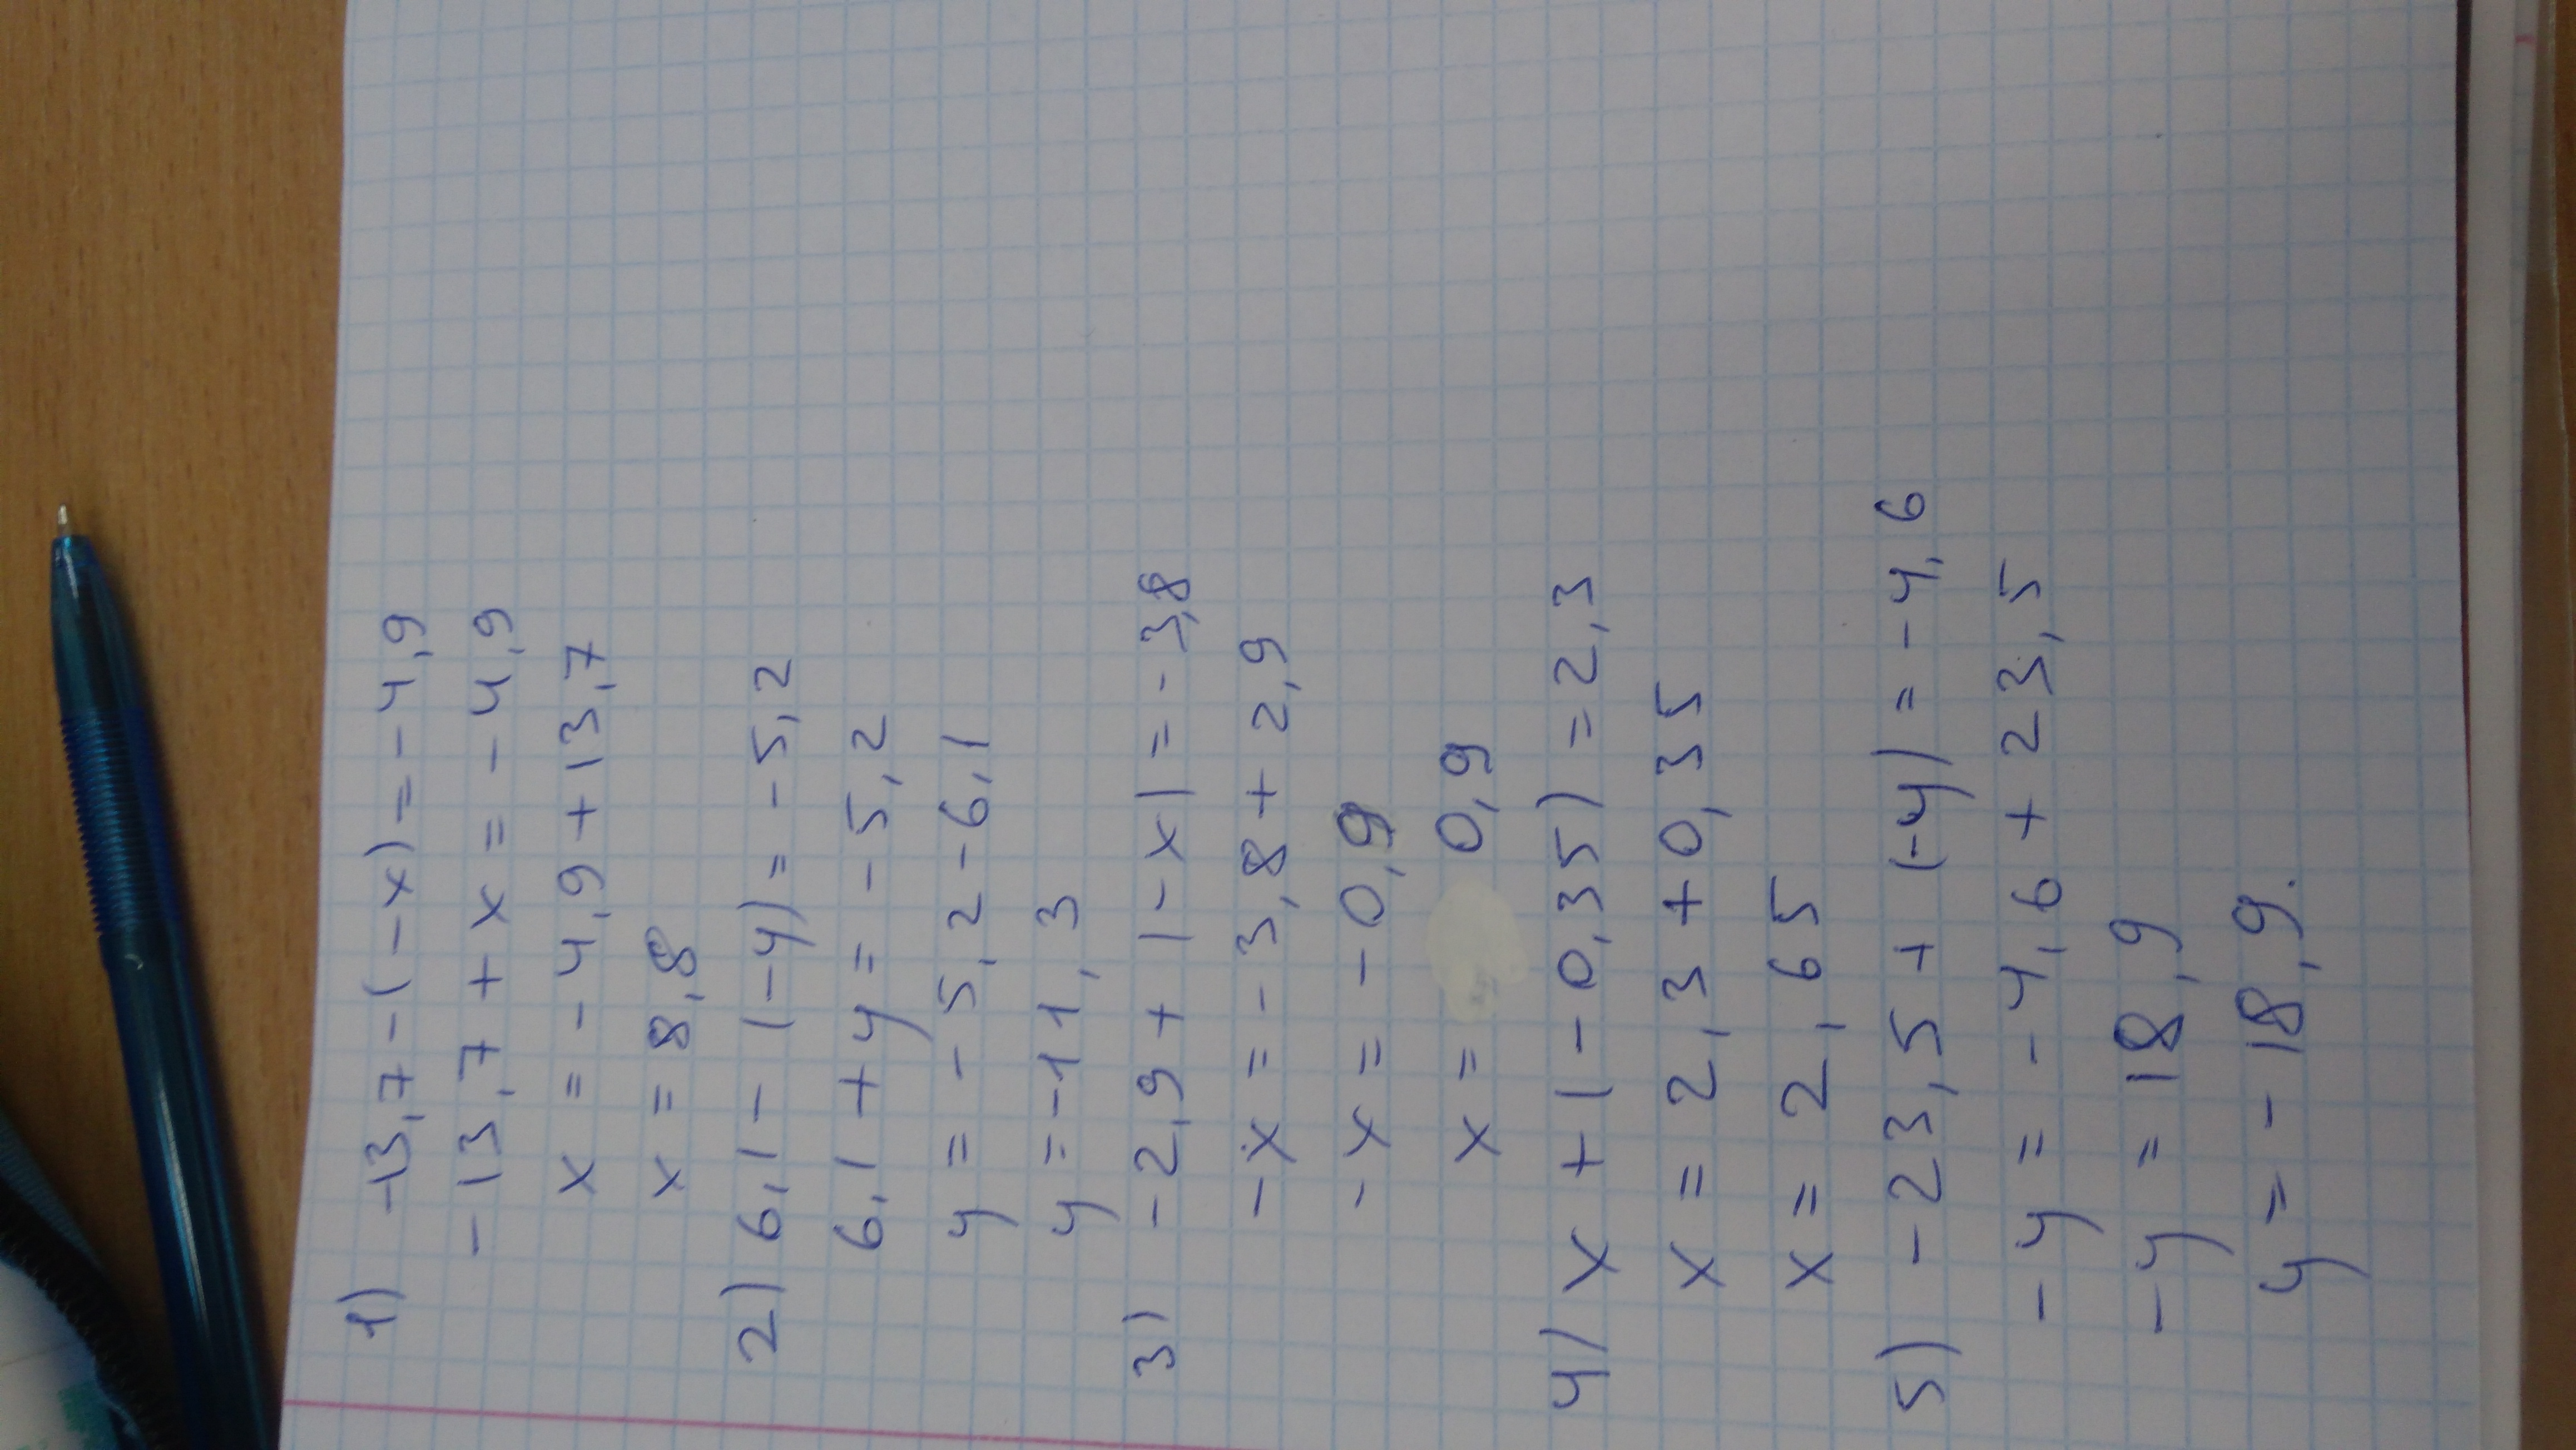 1) -13,7-(-x)=-4,9
-13,7+x=-4,9
x=-4,9+13,7
x=8,8
2) 6,1-(-y)=-5,2
6,1+y=-5,2
y=-5,2-6,1
y=-11,3
3) -2,9+(-x)=-3,8
-x=-3,8+2,9
-x=-0,9
x= 0,9
4) x+(-0,35)=2,3
x=2,3+0,35
x=2,65
5) -23,5+(-y)=-4,6
-y=-4,6+23,5
-y=18,9
y=-18,9.